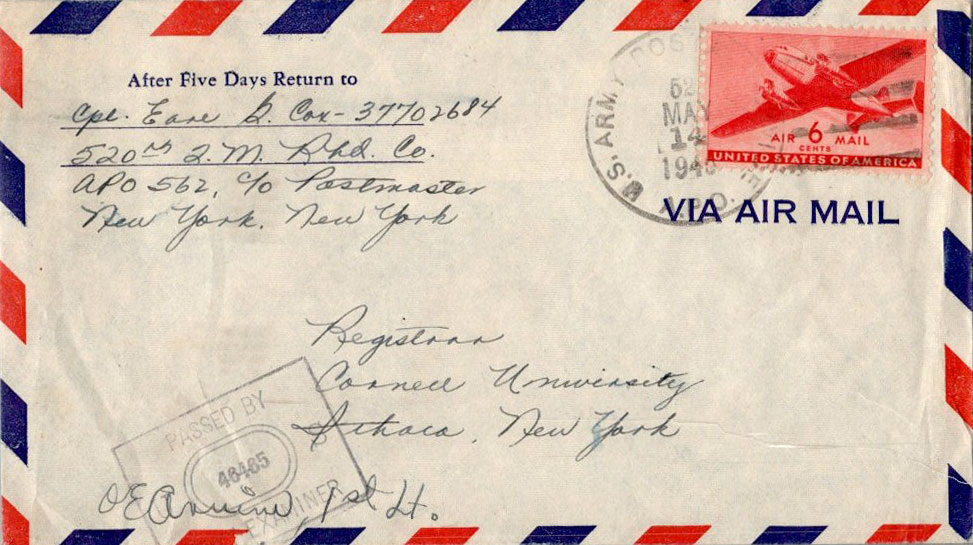 After Five Days Return to
Cpl. Earl G. Cox - 37702684
520th Q.M. Rhd. Co.
APO 562, c/o Postmaster
New York, New York
U.S. ARMY POSTAL
A.P.O.
MAY
14
AIR 6 MAIL
CENTS
UNITED STATES OF AMERICA
VIA AIR MAIL
Registrar
Cornell University
Ithaca, New York
PASSED BY
46485
EXAMINER
1st Lt.